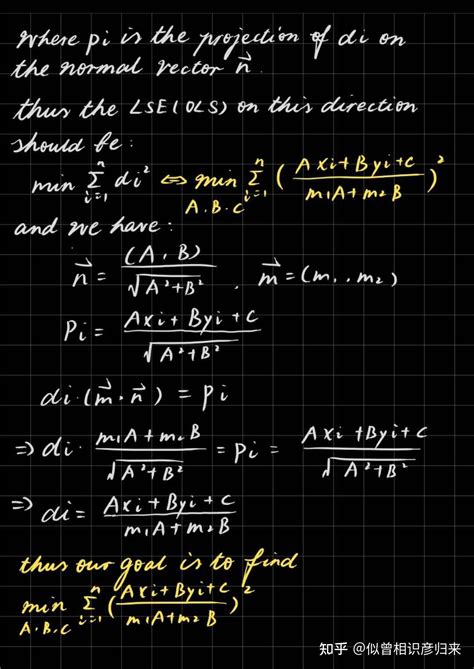 where pi is the projection of di on
the normal vector n⃗.
thus the LSE(OLS) on this direction
should be:
min Σ_{i=1}^{n} di² ⇔ min_{A.B.C} Σ_{i=1}^{n} ( (Axi+Byi+C) / (m₁A+m₂B) )²
and we have:
n⃗ = (A, B) / √(A²+B²) , m⃗ = (m₁, m₂)
Pi = (Axi+Byi+C) / √(A²+B²)
di·(m⃗·n⃗) = Pi
⇒ di· (m₁A+m₂B) / √(A²+B²) = Pi = (Axi+Byi+C) / √(A²+B²)
⇒ di = (Axi+Byi+C) / (m₁A+m₂B)
thus our goal is to find
min_{A.B.C} Σ_{i=1}^{n} ( (Axi+Byi+C) / (m₁A+m₂B) )²
知乎 @似曾相识彦归来